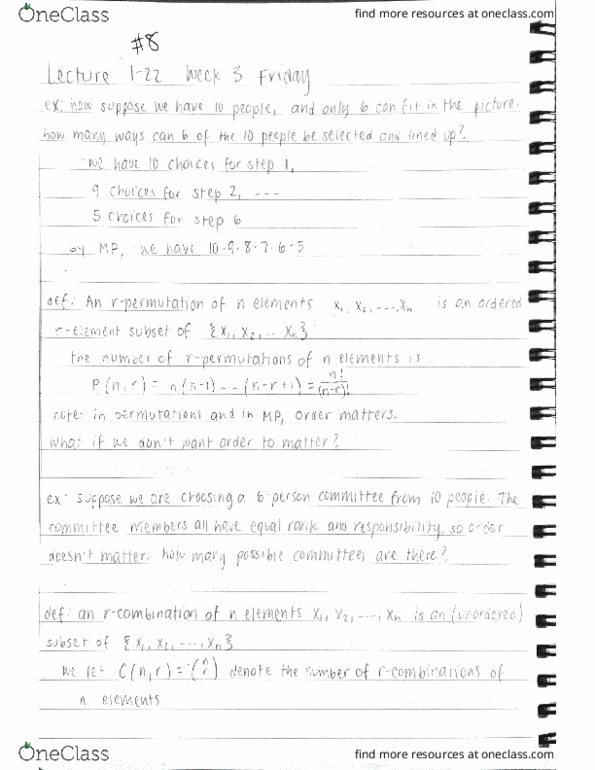 OneClass
find more resources at oneclass.com
#8
Lecture 1-22 Week 3 Friday
ex: now suppose we have 10 people, and only 6 can fit in the picture.
how many ways can 6 of the 10 people be selected and lined up?
we have 10 choices for step 1,
9 choices for step 2, ---
5 choices for step 6
by MP, we have 10·9·8·7·6·5
def: An r-permutation of n elements x₁, x₂, ..., xₙ is an ordered
r-element subset of {x₁, x₂, ... xₙ}
the number of r-permutations of n elements is
P(n,r) = n(n-1) --- (n-r+1) = n!/(n-r)!
note: in permutations and in MP, order matters.
what if we don't want order to matter?
ex: suppose we are choosing a 6-person committee from 10 people. The
committee members all have equal rank and responsibility, so order
doesn't matter. how many possible committees are there?
def: an r-combination of n elements x₁, x₂, ..., xₙ is an (unordered)
subset of {x₁, x₂, ..., xₙ}
we let C(n,r) = denote the number of r-combinations of
n elements
OneClass
find more resources at oneclass.com